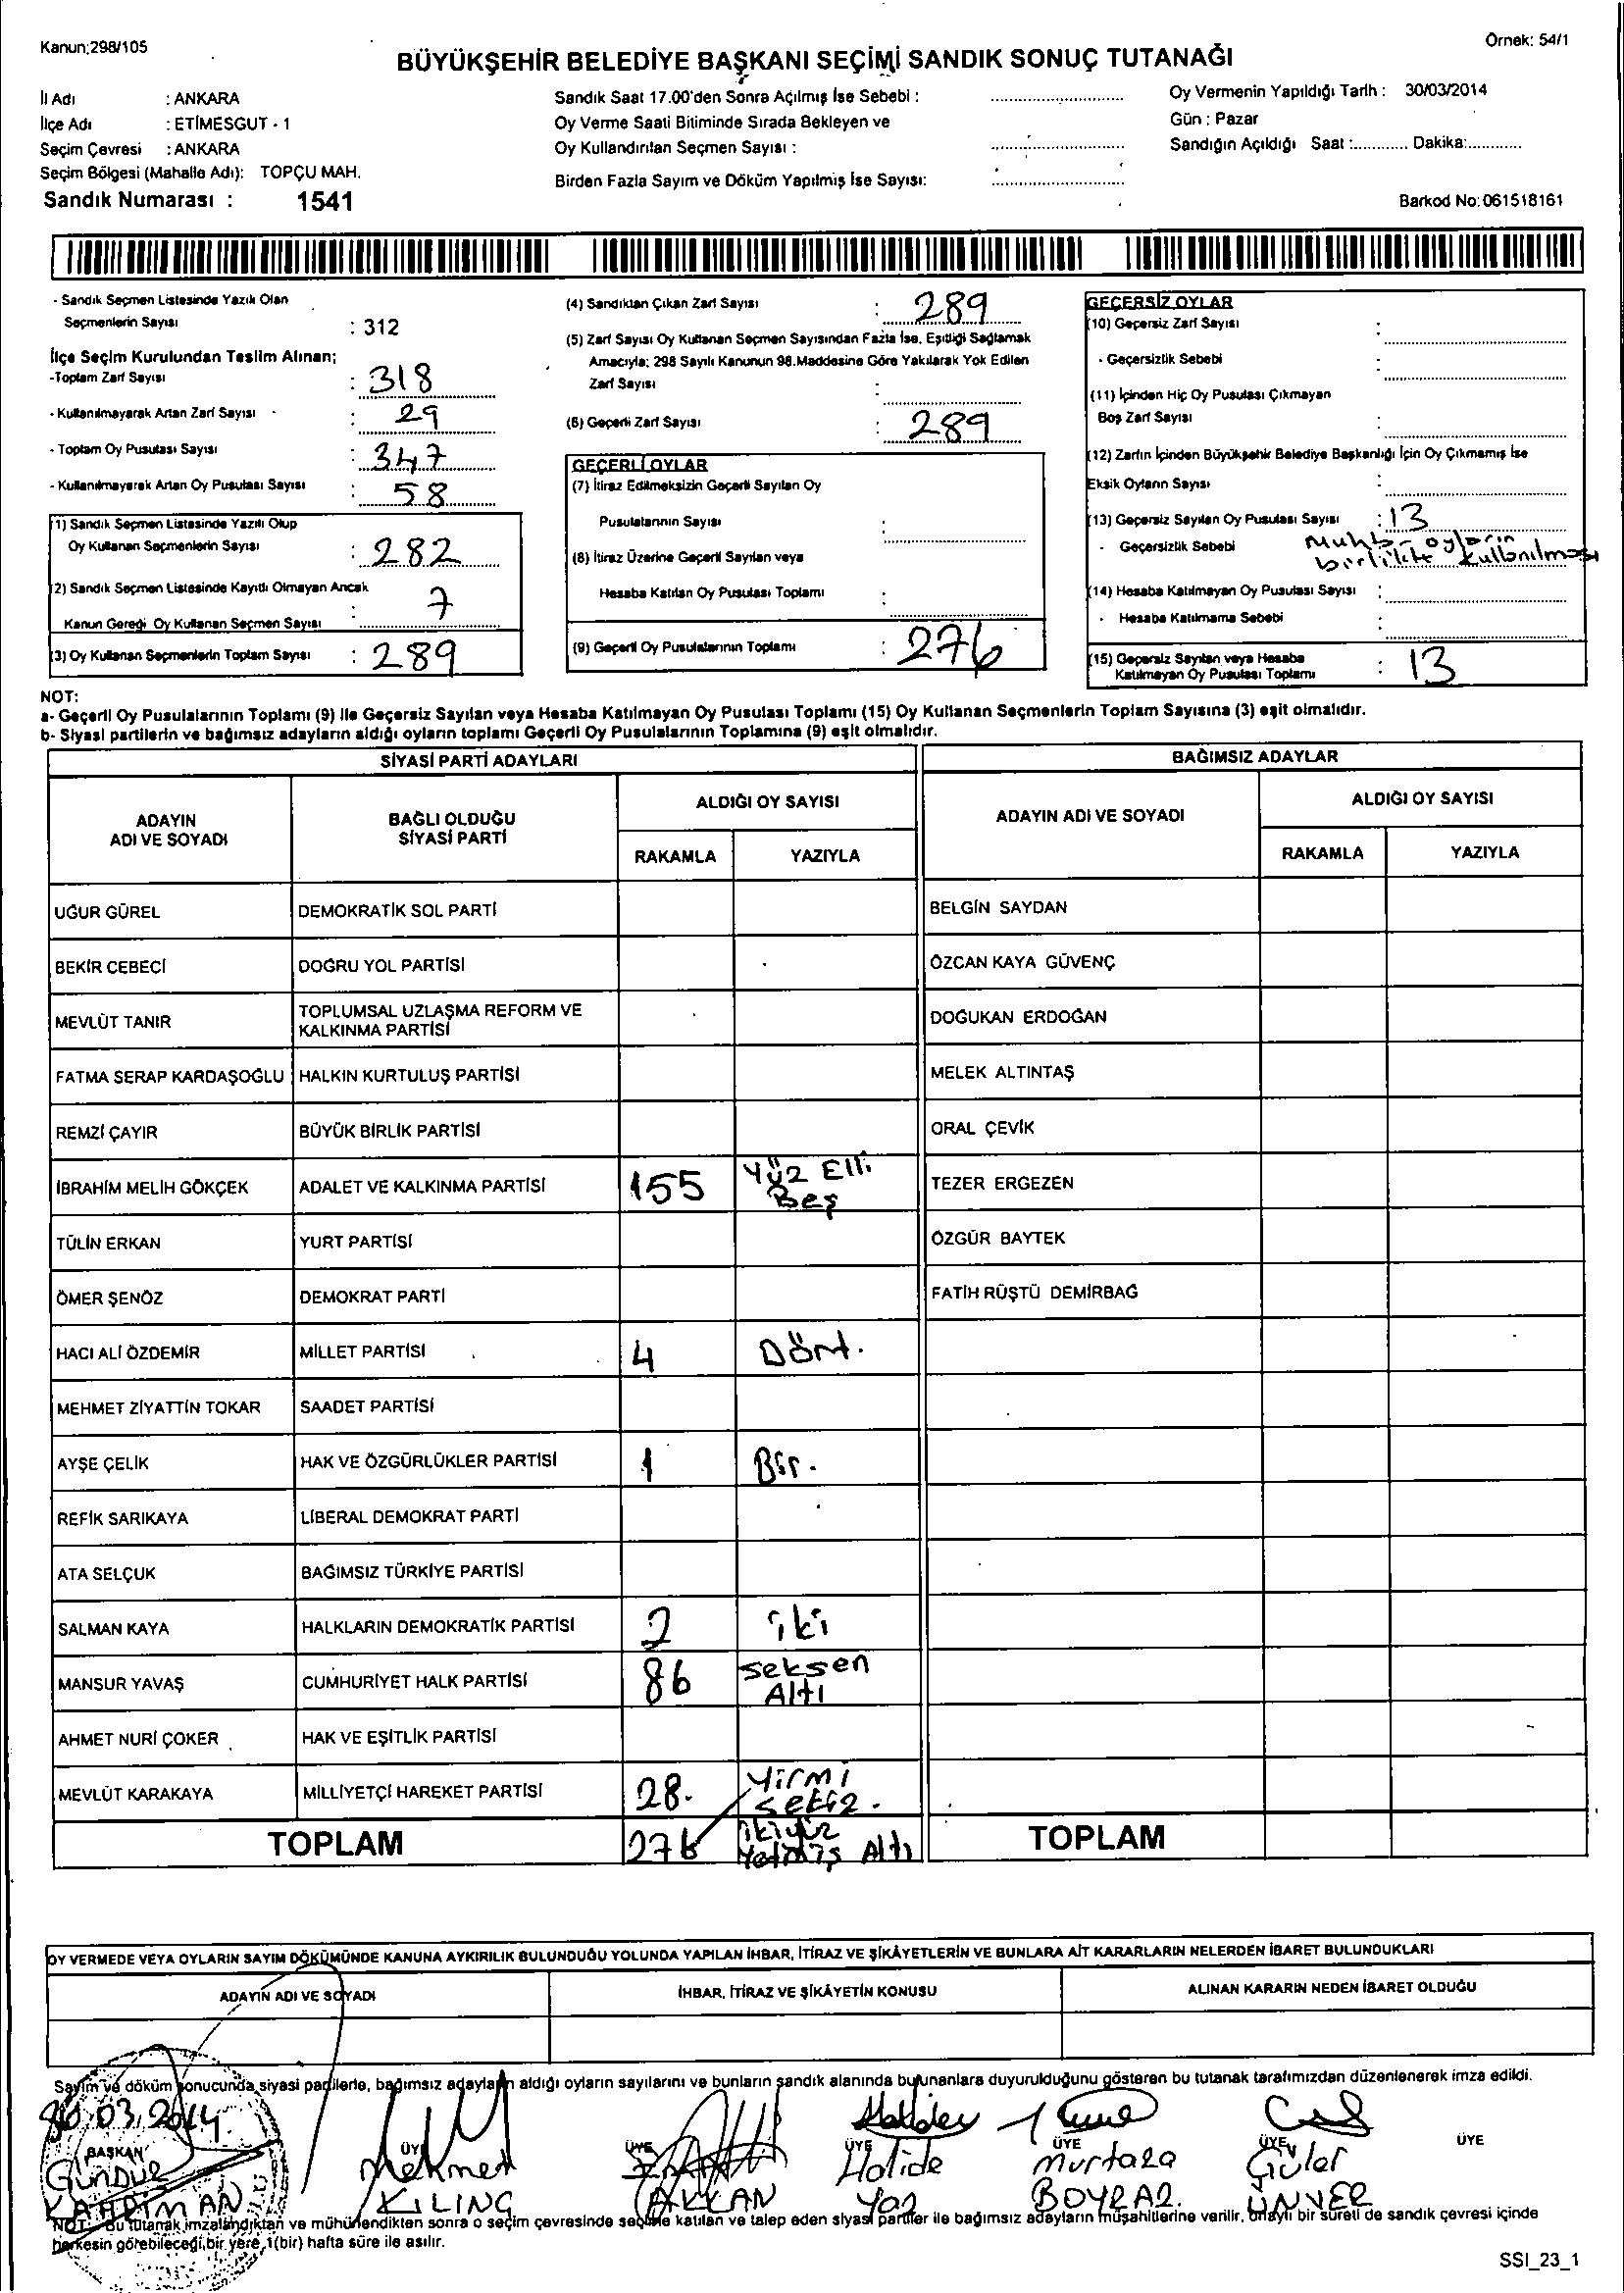 Kanun:298/105
Örnek: 54/1
BÜYÜKŞEHİR BELEDİYE BAŞKANI SEÇİMİ SANDIK SONUÇ TUTANAĞI
İl Adı : ANKARA
İlçe Adı : ETİMESGUT - 1
Seçim Çevresi : ANKARA
Seçim Bölgesi (Mahalle Adı): TOPÇU MAH.
Sandık Numarası : 1541
Sandık Saat 17.00'den Sonra Açılmış İse Sebebi :
Oy Verme Saati Bitiminde Sırada Bekleyen ve
Oy Kullandırılan Seçmen Sayısı :
Birden Fazla Sayım ve Döküm Yapılmış İse Sayısı:
Oy Vermenin Yapıldığı Tarih : 30/03/2014
Gün : Pazar
Sandığın Açıldığı Saat :............ Dakika:............
Barkod No:061518161
- Sandık Seçmen Listesinde Yazılı Olan
Seçmenlerin Sayısı : 312
İlçe Seçim Kurulundan Teslim Alınan;
-Toplam Zarf Sayısı : 318
- Kullanılmayarak Artan Zarf Sayısı : 29
- Toplam Oy Pusulası Sayısı : 347
- Kullanılmayarak Artan Oy Pusulası Sayısı : 58
(1) Sandık Seçmen Listesinde Yazılı Olup
Oy Kullanan Seçmenlerin Sayısı : 282
(2) Sandık Seçmen Listesinde Kayıtlı Olmayan Ancak
Kanun Gereği Oy Kullanan Seçmen Sayısı : 7
(3) Oy Kullanan Seçmenlerin Toplam Sayısı : 289
(4) Sandıktan Çıkan Zarf Sayısı : 289
(5) Zarf Sayısı Oy Kullanan Seçmen Sayısından Fazla İse, Eşitliği Sağlamak
Amacıyla; 298 Sayılı Kanunun 98.Maddesine Göre Yakılarak Yok Edilen
Zarf Sayısı :
(6) Geçerli Zarf Sayısı : 289
GEÇERLİ OYLAR
(7) İtiraz Edilmeksizin Geçerli Sayılan Oy
Pusulalarının Sayısı :
(8) İtiraz Üzerine Geçerli Sayılan veya
Hesaba Katılan Oy Pusulası Toplamı :
(9) Geçerli Oy Pusulalarının Toplamı : 276
GEÇERSİZ OYLAR
(10) Geçersiz Zarf Sayısı :
- Geçersizlik Sebebi :
(11) İçinden Hiç Oy Pusulası Çıkmayan
Boş Zarf Sayısı :
(12) Zarfın İçinden Büyükşehir Belediye Başkanlığı İçin Oy Çıkmamış İse
Eksik Oyların Sayısı :
(13) Geçersiz Sayılan Oy Pusulası Sayısı : 13
- Geçersizlik Sebebi Muhtar oyların
birlikte kullanılması
(14) Hesaba Katılmayan Oy Pusulası Sayısı :
- Hesaba Katılmama Sebebi :
(15) Geçersiz Sayılan veya Hesaba
Katılmayan Oy Pusulası Toplamı : 13
NOT:
a- Geçerli Oy Pusulalarının Toplamı (9) ile Geçersiz Sayılan veya Hesaba Katılmayan Oy Pusulası Toplamı (15) Oy Kullanan Seçmenlerin Toplam Sayısına (3) eşit olmalıdır.
b- Siyasi partilerin ve bağımsız adayların aldığı oyların toplamı Geçerli Oy Pusulalarının Toplamına (9) eşit olmalıdır.
SİYASİ PARTİ ADAYLARI BAĞIMSIZ ADAYLAR
ADAYIN
ADI VE SOYADI
BAĞLI OLDUĞU
SİYASİ PARTİ
ALDIĞI OY SAYISI
RAKAMLA YAZIYLA
ADAYIN ADI VE SOYADI
ALDIĞI OY SAYISI
RAKAMLA YAZIYLA
UĞUR GÜREL DEMOKRATİK SOL PARTİ BELGİN SAYDAN
BEKİR CEBECİ DOĞRU YOL PARTİSİ ÖZCAN KAYA GÜVENÇ
MEVLÜT TANIR TOPLUMSAL UZLAŞMA REFORM VE
KALKINMA PARTİSİ DOĞUKAN ERDOĞAN
FATMA SERAP KARDAŞOĞLU HALKIN KURTULUŞ PARTİSİ MELEK ALTINTAŞ
REMZİ ÇAYIR BÜYÜK BİRLİK PARTİSİ ORAL ÇEVİK
İBRAHİM MELİH GÖKÇEK ADALET VE KALKINMA PARTİSİ 155 Yüz Elli
Beş TEZER ERGEZEN
TÜLİN ERKAN YURT PARTİSİ ÖZGÜR BAYTEK
ÖMER ŞENÖZ DEMOKRAT PARTİ FATİH RÜŞTÜ DEMİRBAĞ
HACI ALİ ÖZDEMİR MİLLET PARTİSİ 4 Dört.
MEHMET ZİYATTİN TOKAR SAADET PARTİSİ
AYŞE ÇELİK HAK VE ÖZGÜRLÜKLER PARTİSİ 1 Bir.
REFİK SARIKAYA LİBERAL DEMOKRAT PARTİ
ATA SELÇUK BAĞIMSIZ TÜRKİYE PARTİSİ
SALMAN KAYA HALKLARIN DEMOKRATİK PARTİSİ 2 iki
MANSUR YAVAŞ CUMHURİYET HALK PARTİSİ 86 Seksen
Altı
AHMET NURİ ÇOKER HAK VE EŞİTLİK PARTİSİ
MEVLÜT KARAKAYA MİLLİYETÇİ HAREKET PARTİSİ 28. Yirmi
sekiz.
TOPLAM 276 ikiyüz
Yetmiş Altı TOPLAM
OY VERMEDE VEYA OYLARIN SAYIM DÖKÜMÜNDE KANUNA AYKIRILIK BULUNDUĞU YOLUNDA YAPILAN İHBAR, İTİRAZ VE ŞİKÂYETLERİN VE BUNLARA AİT KARARLARIN NELERDEN İBARET BULUNDUKLARI
ADAYIN ADI VE SOYADI İHBAR, İTİRAZ VE ŞİKÂYETİN KONUSU ALINAN KARARIN NEDEN İBARET OLDUĞU
Sayım ve döküm sonucunda siyasi partilerle, bağımsız adayların aldığı oyların sayılarını ve bunların sandık alanında bulunanlara duyurulduğunu gösteren bu tutanak tarafımızdan düzenlenerek imza edildi.
30.03.2014
BAŞKAN ÜYE ÜYE ÜYE ÜYE ÜYE ÜYE
Mehmet Halide Murtaza Güler
KILINÇ AKKAN Yaz BOYRAZ. ÜNVER
NOT: Bu tutanak imzalandıktan ve mühürlendikten sonra o seçim çevresinde seçime katılan ve talep eden siyasi partiler ile bağımsız adayların müşahitlerine verilir, onaylı bir sureti de sandık çevresi içinde
herkesin görebileceği bir yere 1(bir) hafta süre ile asılır.
SSI_23_1